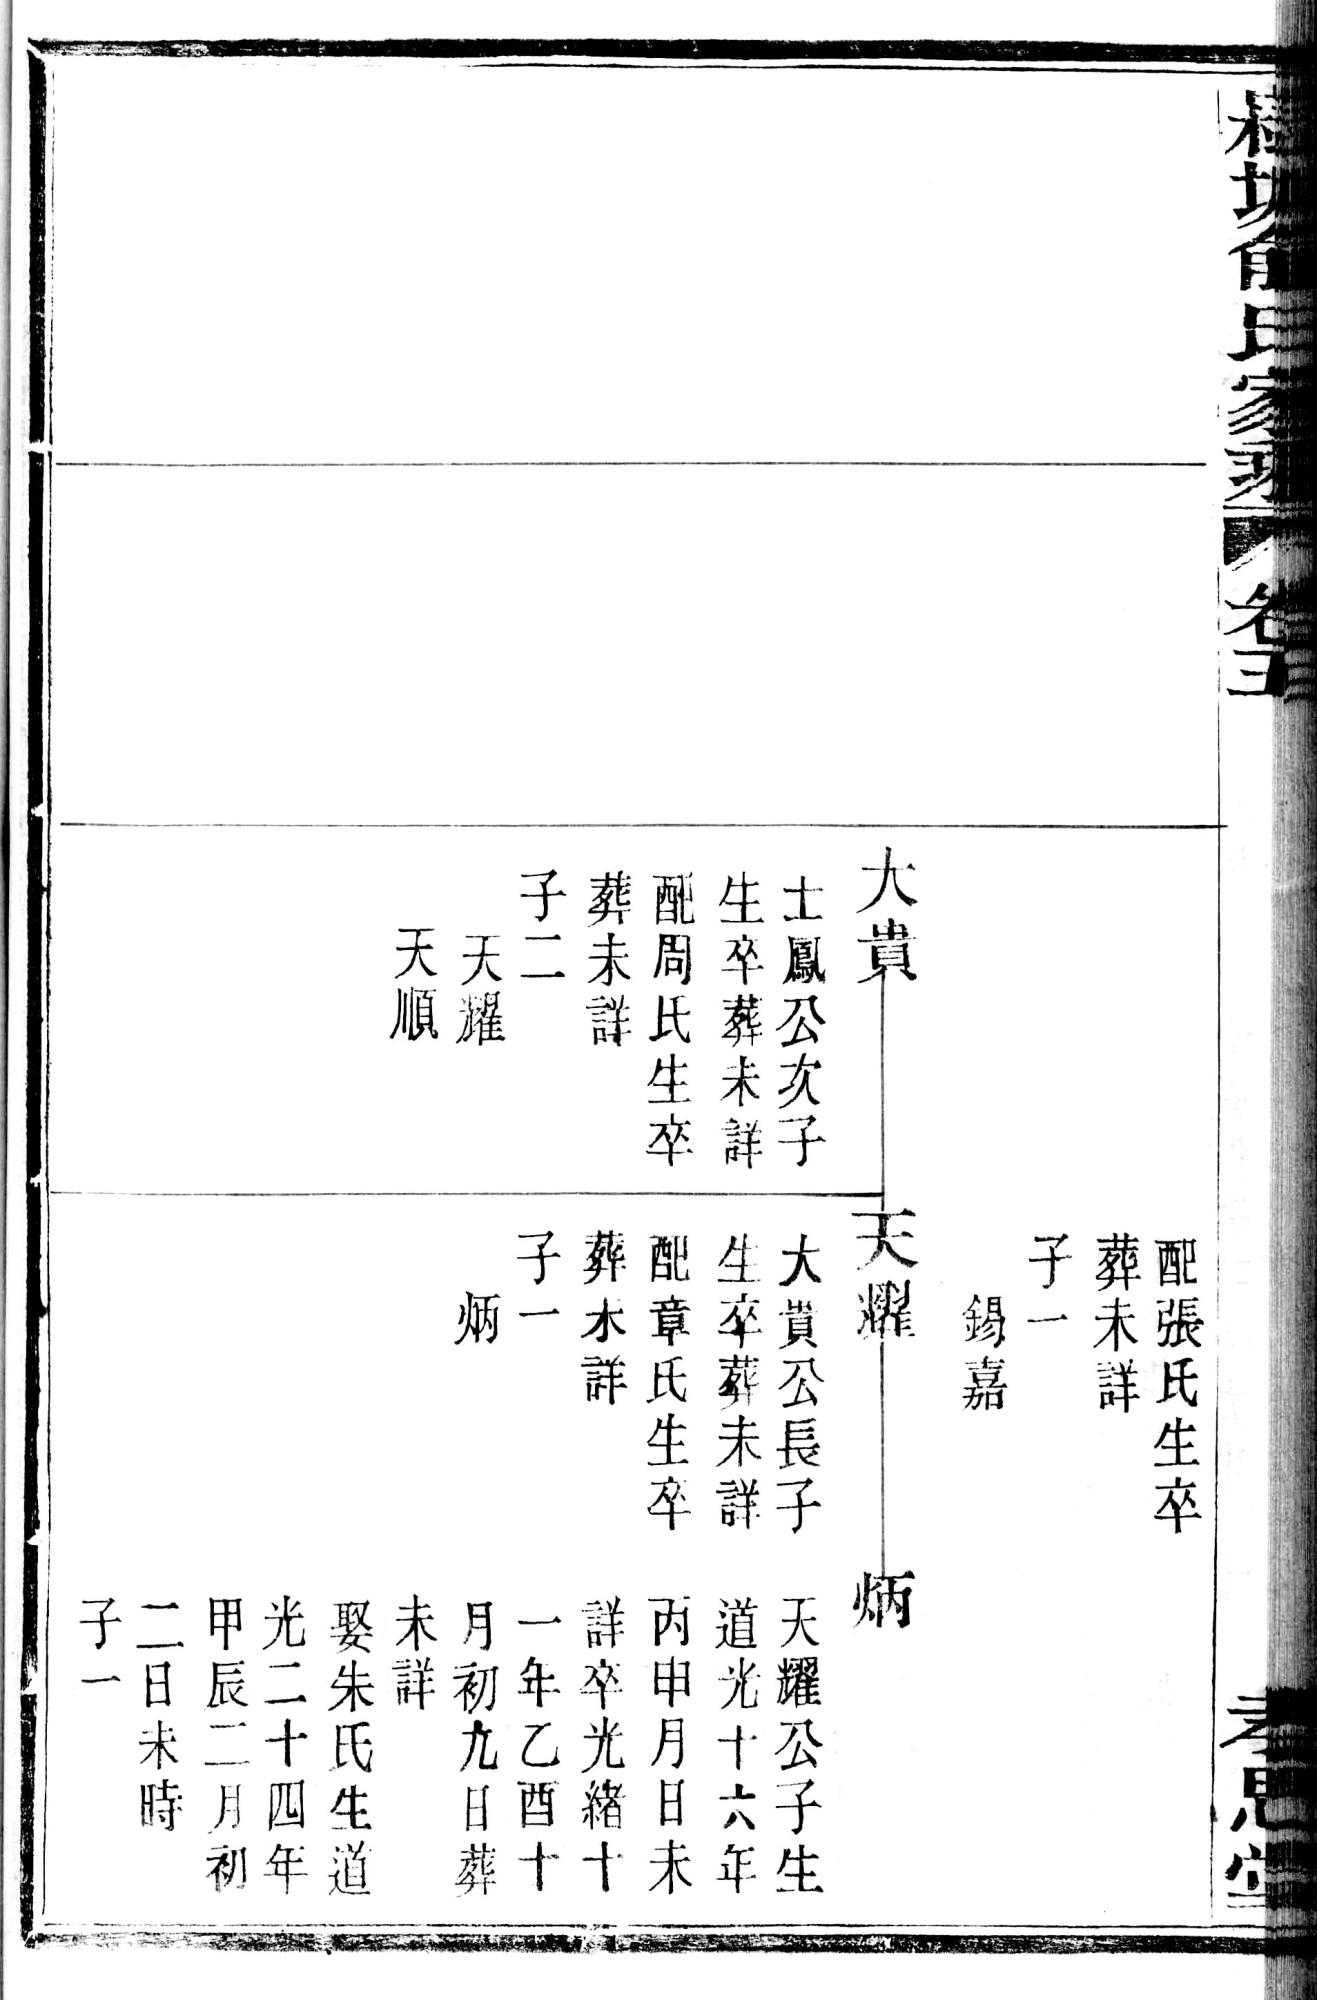 俞氏家乘
卷五
孝思堂
大貴
士鳳公次子
生卒葬未詳
配周氏生卒
葬未詳
子二
天耀
天順
配張氏生卒
葬未詳
子一
錫嘉
天耀
大貴公長子
生卒葬未詳
配章氏生卒
葬未詳
子一
炳
炳
天耀公子生
道光十六年
丙申月日未
詳卒光緒十
一年乙酉十
月初九日葬
未詳
娶朱氏生道
光二十四年
甲辰二月初
二日未時
子一